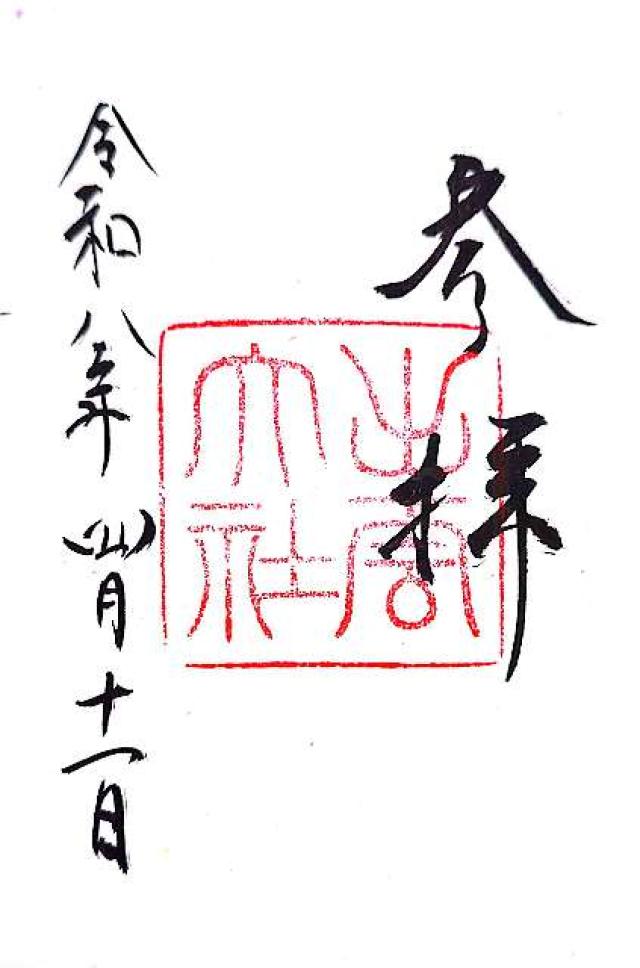 参拝
出雲
大社
令和八年四月十一日